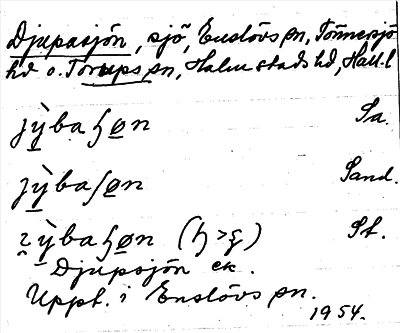 Djupasjön, sjö, Enslövs sn, Tönnersjö
hd o. Torups sn, Halmstads hd, Hall. l
jỳ̲baɧø̲n Sa.
jỳ̲baʃø̲n Sand.
ỳ̲baɧø̲n (ɧ > ) St.
Djupsjön ek.
Uppt. i Enslövs sn.
1954.